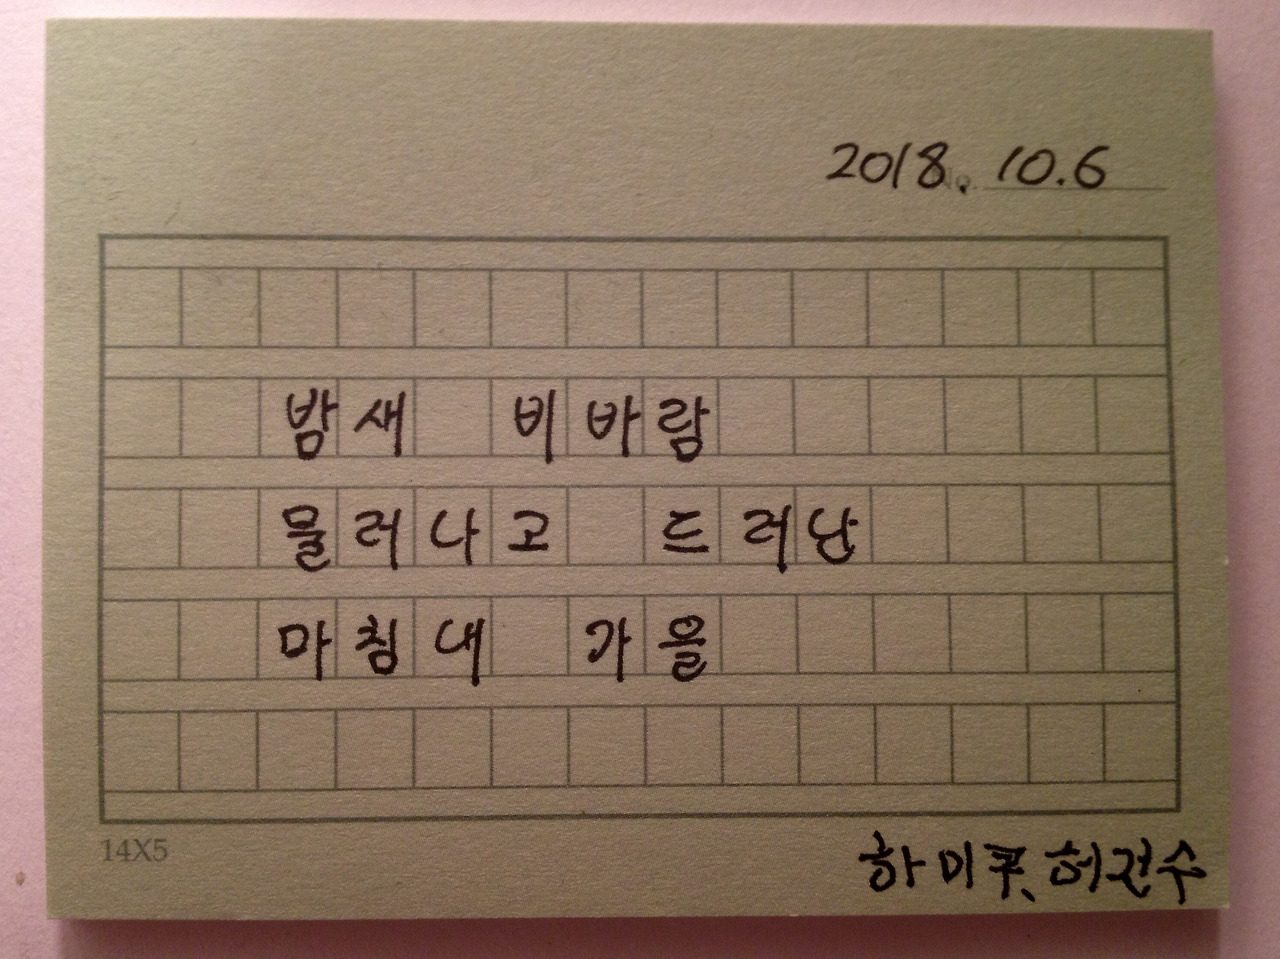 2018. 10.6
밤새 비바람
물러나고 드러난
마침내 가을
14X5
하미쿳, 허건수